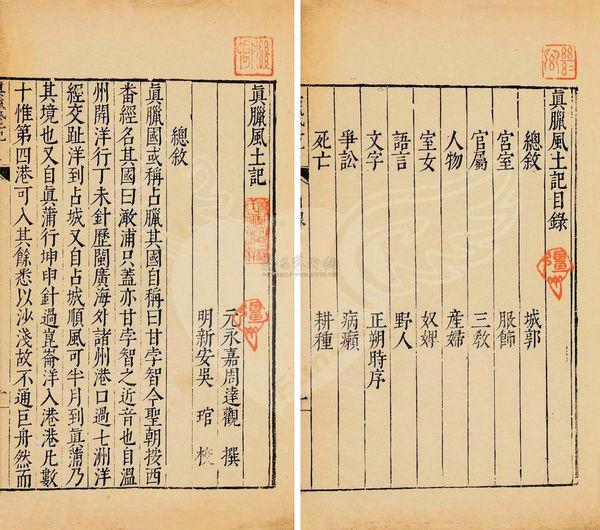 眞臘風土記目錄
總敘 城郭
宮室 服飾
官屬 三敎
人物 產婦
室女 奴婢
語言 野人
文字 正朔時序
爭訟 病癩
死亡 耕種
眞臘風土記
元永嘉周達觀 撰
明新安吳 琯 校
總敘
眞臘國或稱占臘其國自稱曰甘孛智今聖朝按西
番經名其國曰澉浦只蓋亦甘孛智之近音也自溫
州開洋行丁未針歷閩廣海外諸州港口過七洲洋
經交趾洋到占城又自占城順風可半月到眞蒲乃
其境也又自眞蒲行坤申針過崑崙洋入港港凡數
十惟第四港可入其餘悉以沙淺故不通巨舟然而